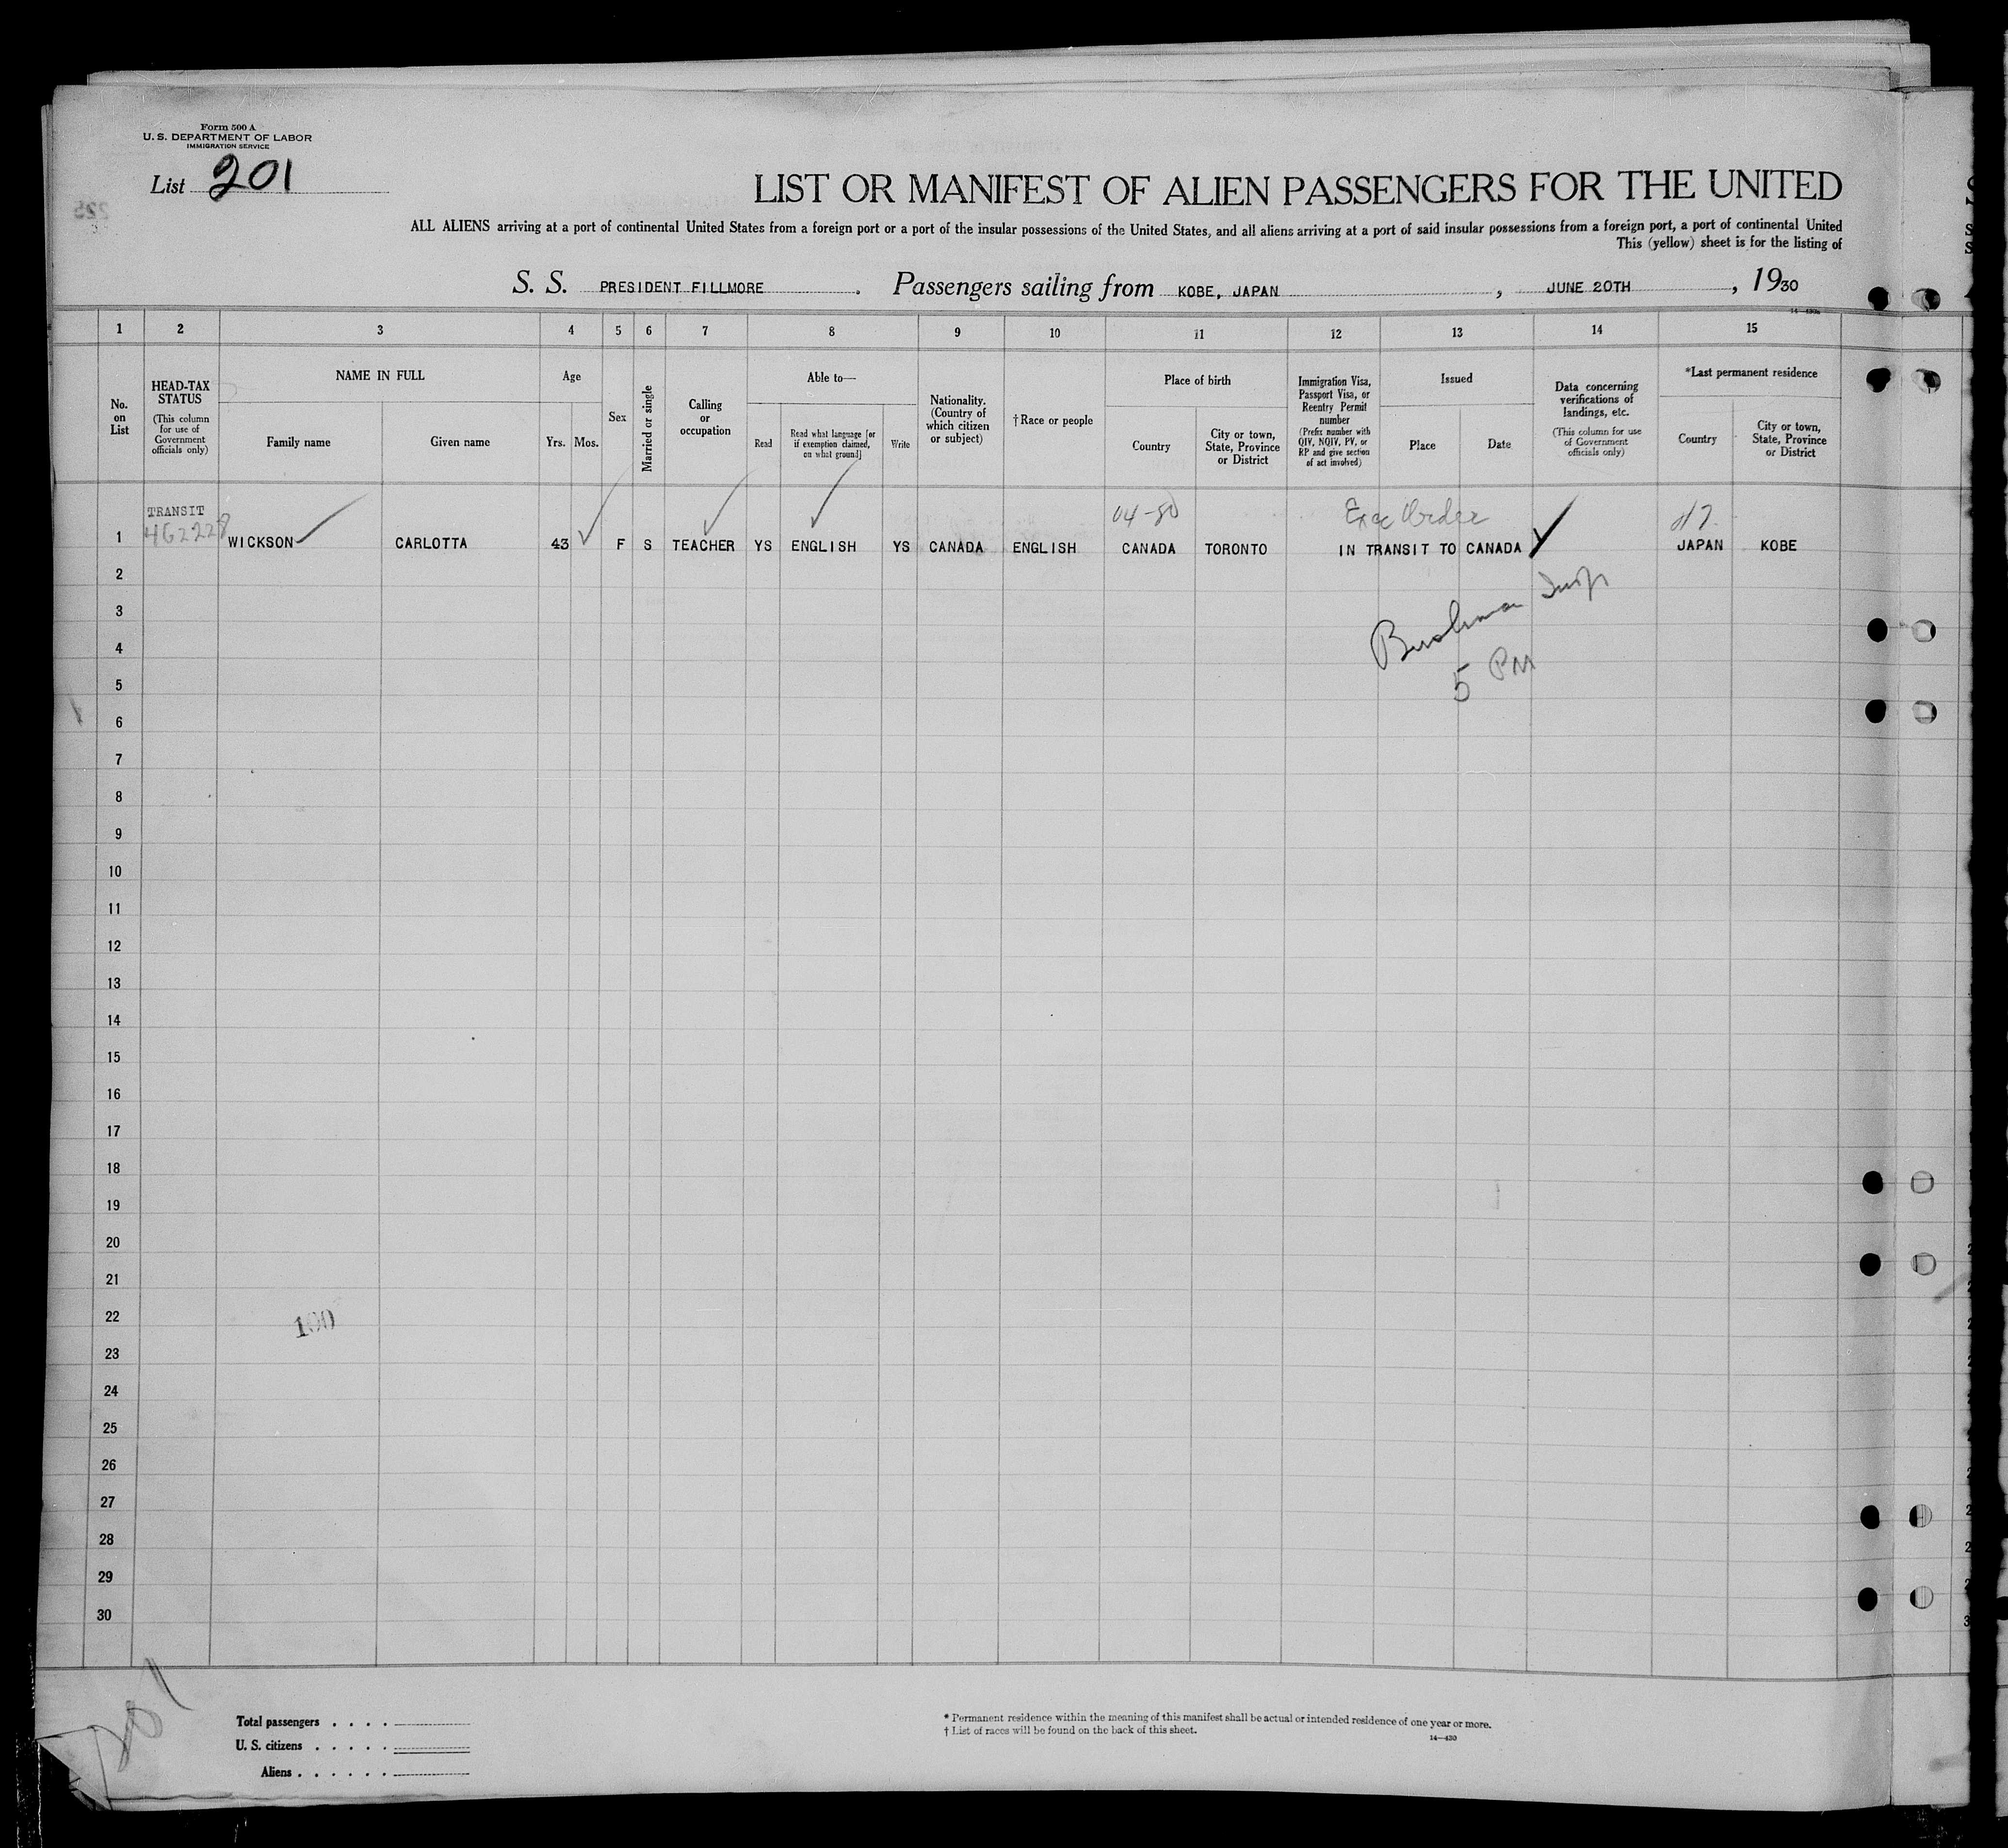 Form 500 A
U. S. DEPARTMENT OF LABOR
IMMIGRATION SERVICE
List 201
225
LIST OR MANIFEST OF ALIEN PASSENGERS FOR THE UNITED
ALL ALIENS arriving at a port of continental United States from a foreign port or a port of the insular possessions of the United States, and all aliens arriving at a port of said insular possessions from a foreign port, a port of continental United
This (yellow) sheet is for the listing of
S. S. PRESIDENT FILLMORE. Passengers sailing from KOBE, JAPAN, JUNE 20TH, 1930
1 2 3 4 5 6 7 8 9 10 11 12 13 14 15
No. on List
HEAD-TAX STATUS
(This column for use of Government officials only)
NAME IN FULL
Family name
Given name
Age
Yrs. Mos.
Sex
Married or single
Calling or occupation
Able to—
Read
Read what language [or if exemption claimed, on what ground]
Write
Nationality. (Country of which citizen or subject)
†Race or people
Place of birth
Country
City or town, State, Province or District
Immigration Visa, Passport Visa, or Reentry Permit number
(Prefix number with QIV, NQIV, PV, or RP and give section of act involved)
Issued
Place
Date
Data concerning verifications of landings, etc.
(This column for use of Government officials only)
*Last permanent residence
Country
City or town, State, Province or District
TRANSIT
Exec Order
1 WICKSON CARLOTTA 43 F S TEACHER YS ENGLISH YS CANADA ENGLISH CANADA TORONTO IN TRANSIT TO CANADA JAPAN KOBE
2
3
4
5 PM
5
6
7
8
9
10
11
12
13
14
15
16
17
18
19
20
21
22
100
23
24
25
26
27
28
29
30
201
Total passengers . . . .
U. S. citizens . . . . .
Aliens . . . . . .
* Permanent residence within the meaning of this manifest shall be actual or intended residence of one year or more.
† List of races will be found on the back of this sheet.
14—430